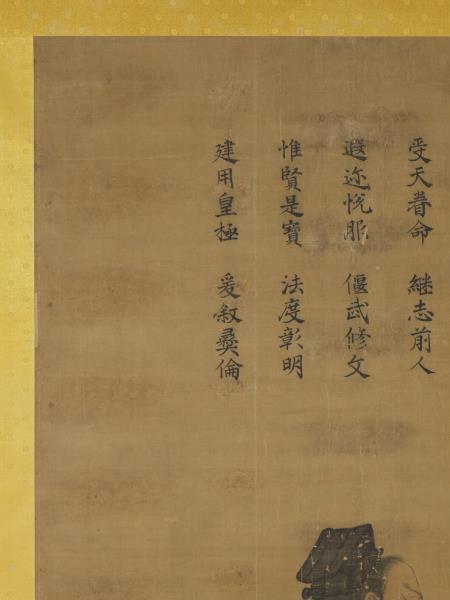 受天眷命 継志前人
遐迩悦服 偃武修文
惟賢是寶 法度彰明
建用皇極 爰叙彝倫